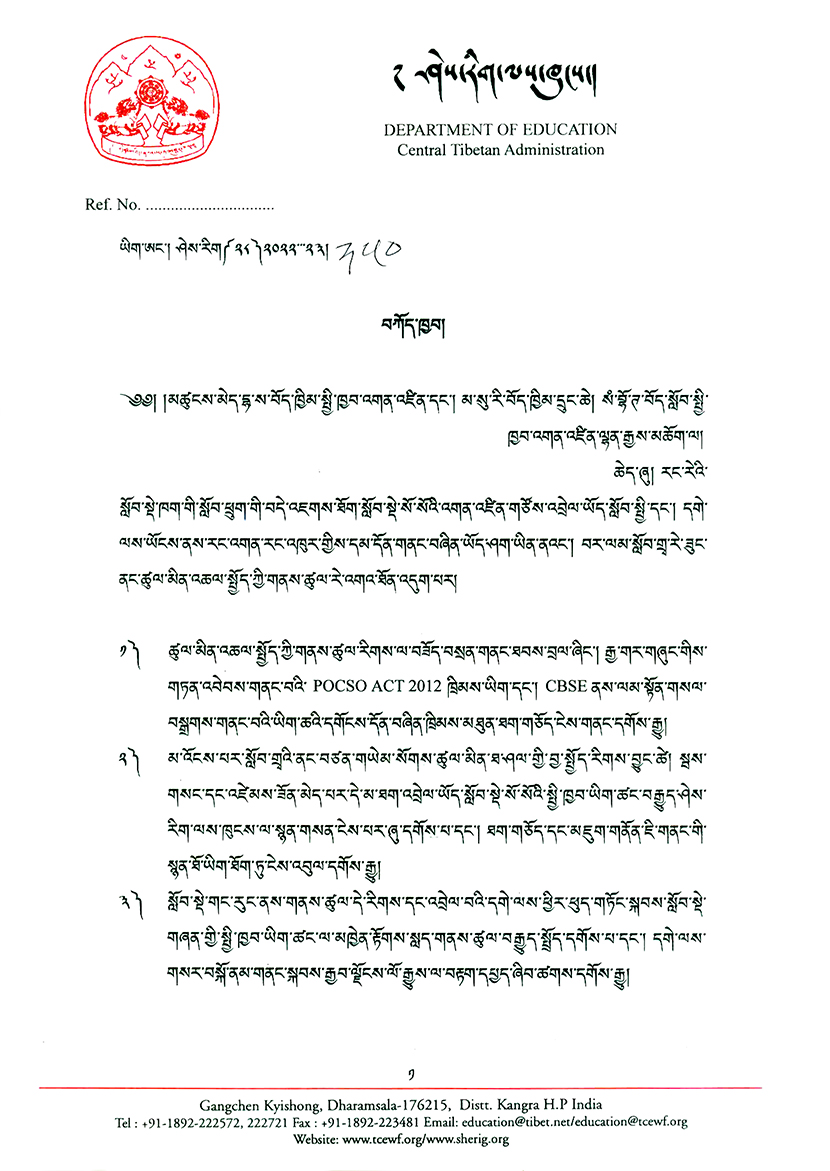 ༄ ཤེས་རིག་ལས་ཁུངས།།
DEPARTMENT OF EDUCATION
Central Tibetan Administration
Ref. No. ...............................
ཡིག་ཨང་། ཤེས་རིག༼ ༢༨ ༽༢༠༢༢་་་༢༣། ༣༥༠
བཀོད་ཁྱབ།
༄༅། །མཚུངས་མེད་དྷ་ས་བོད་ཁྱིམ་སྤྱི་ཁྱབ་འགན་འཛིན་དང་། མ་སུ་རི་བོད་ཁྱིམ་དྲུང་ཆེ། སཾ་བྷོ་ཊ་བོད་སློབ་སྤྱི་
ཁྱབ་འགན་འཛིན་ལྷན་རྒྱས་མཆོག་ལ།
ཆེད་ཞུ། རང་རེའི་
སློབ་སྡེ་ཁག་གི་སློབ་ཕྲུག་གི་བདེ་འཇགས་ཐོག་སློབ་སྡེ་སོ་སོའི་འགན་འཛིན་གཙོས་འབྲེལ་ཡོད་སློབ་སྤྱི་དང་། དགེ་
ལས་ཡོངས་ནས་རང་འགན་རང་འཁུར་གྱིས་དམ་དོན་གནང་བཞིན་ཡོད་ཤག་ཡིན་ནའང་། བར་ལམ་སློབ་གྲྭ་རེ་ཟུང་
ནང་ཚུལ་མིན་འཆལ་སྤྱོད་ཀྱི་གནས་ཚུལ་རེ་འགའ་ཐོན་འདུག་པར།
༡༽ ཚུལ་མིན་འཆལ་སྤྱོད་ཀྱི་གནས་ཚུལ་རིགས་ལ་བཟོད་བསྲན་གནང་ཐབས་བྲལ་ཞིང་། རྒྱ་གར་གཞུང་གིས་
གཏན་འབེབས་གནང་བའི་ POCSO ACT 2012 ཁྲིམས་ཡིག་དང་། CBSE ནས་ལམ་སྟོན་གསལ་
བསྒྲགས་གནང་བའི་ཡིག་ཆའི་དགོངས་དོན་བཞིན་ཁྲིམས་མཐུན་ཐག་གཅོད་ངེས་གནང་དགོས་རྒྱུ།
༢༽ མ་འོངས་པར་སློབ་གྲྭའི་ནང་བཙན་གཡེམ་སོགས་ཚུལ་མིན་ཐ་ཤལ་གྱི་བྱ་སྤྱོད་རིགས་བྱུང་ཚེ། སྦས་
གསང་དང་འཛེམས་ཟོན་མེད་པར་དེ་མ་ཐག་འབྲེལ་ཡོད་སློབ་སྡེ་སོ་སོའི་སྤྱི་ཁྱབ་ཡིག་ཚང་བརྒྱུད་ཤེས་
རིག་ལས་ཁུངས་ལ་སྙན་གསན་ངེས་པར་ཞུ་དགོས་པ་དང་། ཐག་གཅོད་དང་མཇུག་གནོན་ཇི་གནང་གི་
སྙན་ཐོ་ཡིག་ཐོག་ཏུ་ངེས་འབུལ་དགོས་རྒྱུ།
༣༽ སློབ་སྡེ་གང་རུང་ནས་གནས་ཚུལ་དེ་རིགས་དང་འབྲེལ་བའི་དགེ་ལས་ཕྱིར་ཕུད་གཏོང་སྐབས་སློབ་སྡེ་
གཞན་གྱི་སྤྱི་ཁྱབ་ཡིག་ཚང་ལ་མཁྱེན་རྟོགས་སླད་གནས་ཚུལ་བརྒྱུད་སྤྲོད་དགོས་པ་དང་། དགེ་ལས་
གསར་བསྐོ་ནམ་གནང་སྐབས་རྒྱབ་ལྗོངས་ལོ་རྒྱུས་ལ་བརྟག་དཔྱད་ཞིབ་ཚགས་དགོས་རྒྱུ།
༡
Gangchen Kyishong, Dharamsala-176215, Distt. Kangra H.P India
Tel : +91-1892-222572, 222721 Fax : +91-1892-223481 Email: education@tibet.net/education@tcewf.org
Website: www.tcewf.org/www.sherig.org